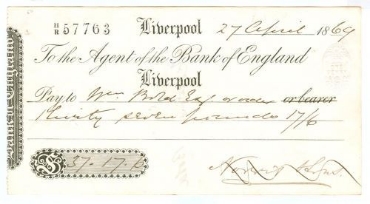 H/R 57763 Liverpool 27 April 1869
To the Agent of the Bank of England
Liverpool
Pay to Wm Bold Esq or order or bearer
Thirty seven pounds 17/6
£ 37.17.6